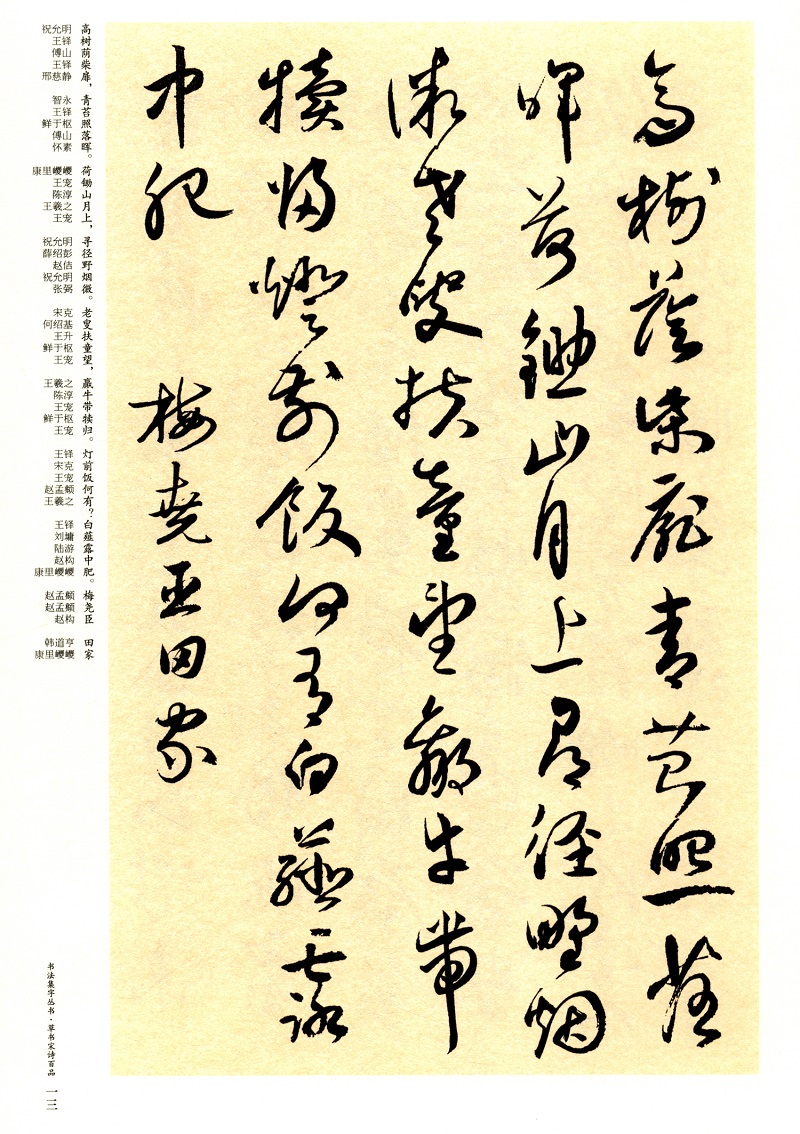 高樹蔭柴扉青苔照落
暉荷鋤山月上尋徑野烟
微老叟扶童望羸牛帶
犢歸燈前飯何有白薤露
中肥 梅堯臣田家
高树荫柴扉，青苔照落晖。荷锄山月上，寻径野烟微。老叟扶童望，羸牛带犊归。灯前饭何有？白薤露中肥。 梅尧臣 田家
祝允明
王铎
傅山
王铎
邢慈静
智永
王铎
鲜于枢
傅山
怀素
康里巎巎
王宠
陈淳
王羲之
王宠
祝允明
薛绍彭
赵佶
祝允明
张弼
宋克
何绍基
王升
鲜于枢
王宠
王羲之
陈淳
王宠
鲜于枢
王宠
王铎
宋克
王宠
赵孟頫
王羲之
王铎
刘墉
陆游
赵构
康里巎巎
赵孟頫
赵孟頫
赵构
韩道亨
康里巎巎
书法集字丛书·草书宋诗百品
一三